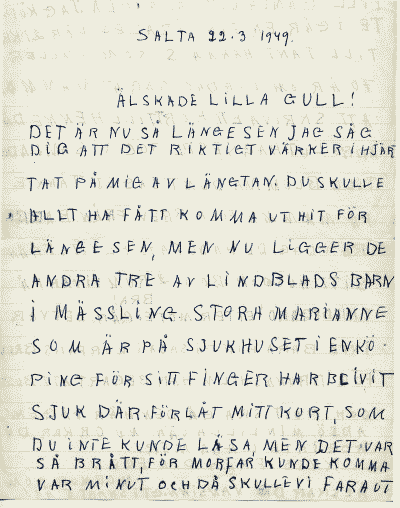 SALTA 22.3 1949.
ÄLSKADE LILLA GULL!
DET ÄR NU SÅ LÄNGE SEN JAG SÅG
DIG ATT DET RIKTIGT VÄRKER I HJÄR
TAT PÅ MIG AV LÄNGTAN. DU SKULLE
ALLT HA FÅTT KOMMA UT HIT FÖR
LÄNGE SEN, MEN NU LIGGER DE
ANDRA TRE AV LINDBLADS BARN
I MÄSSLING. STORA MARIANNE
SOM ÄR PÅ SJUKHUSET I ENKÖ-
PING FÖR SITT FINGER HAR BLIVIT
SJUK DÄR. FÖRLÅT MITT KORT, SOM
DU INTE KUNDE LÄSA, MEN DET VAR
SÅ BRÅTT, FÖR MORFAR KUNDE KOMMA
VAR MINUT OCH DÅ SKULLE VI FARA UT